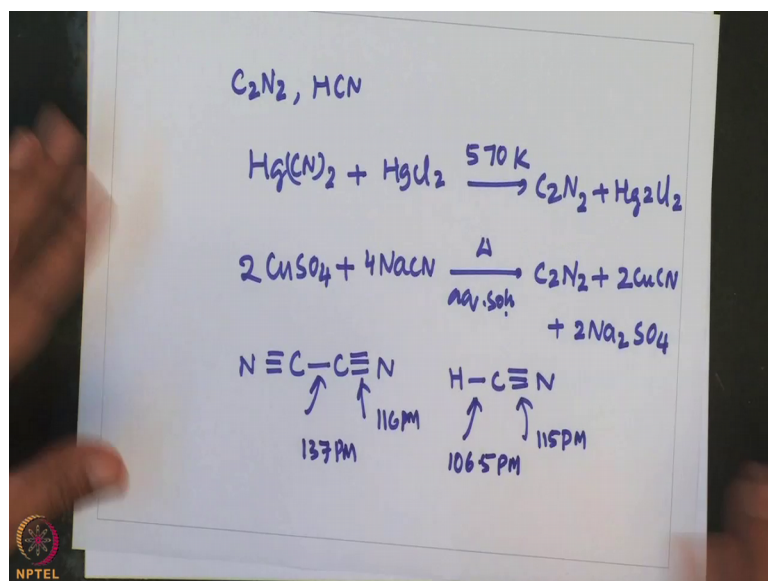 C2N2, HCN
Hg(CN)2 + HgCl2 570 K → C2N2 + Hg2Cl2
2 CuSO4 + 4NaCN Δ aq. soln. → C2N2 + 2CuCN
+ 2Na2SO4
N≡C—C≡N H—C≡N
116PM 115PM
137PM 106.5PM
NPTEL